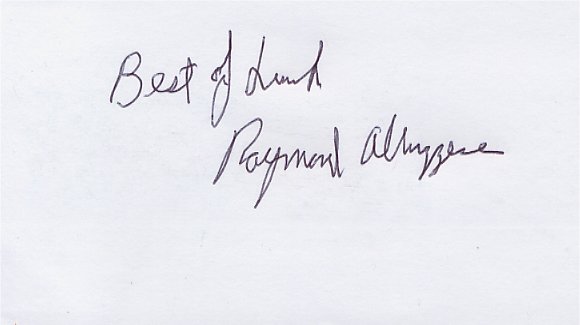 Best of Luck
Raymond Abruzzese